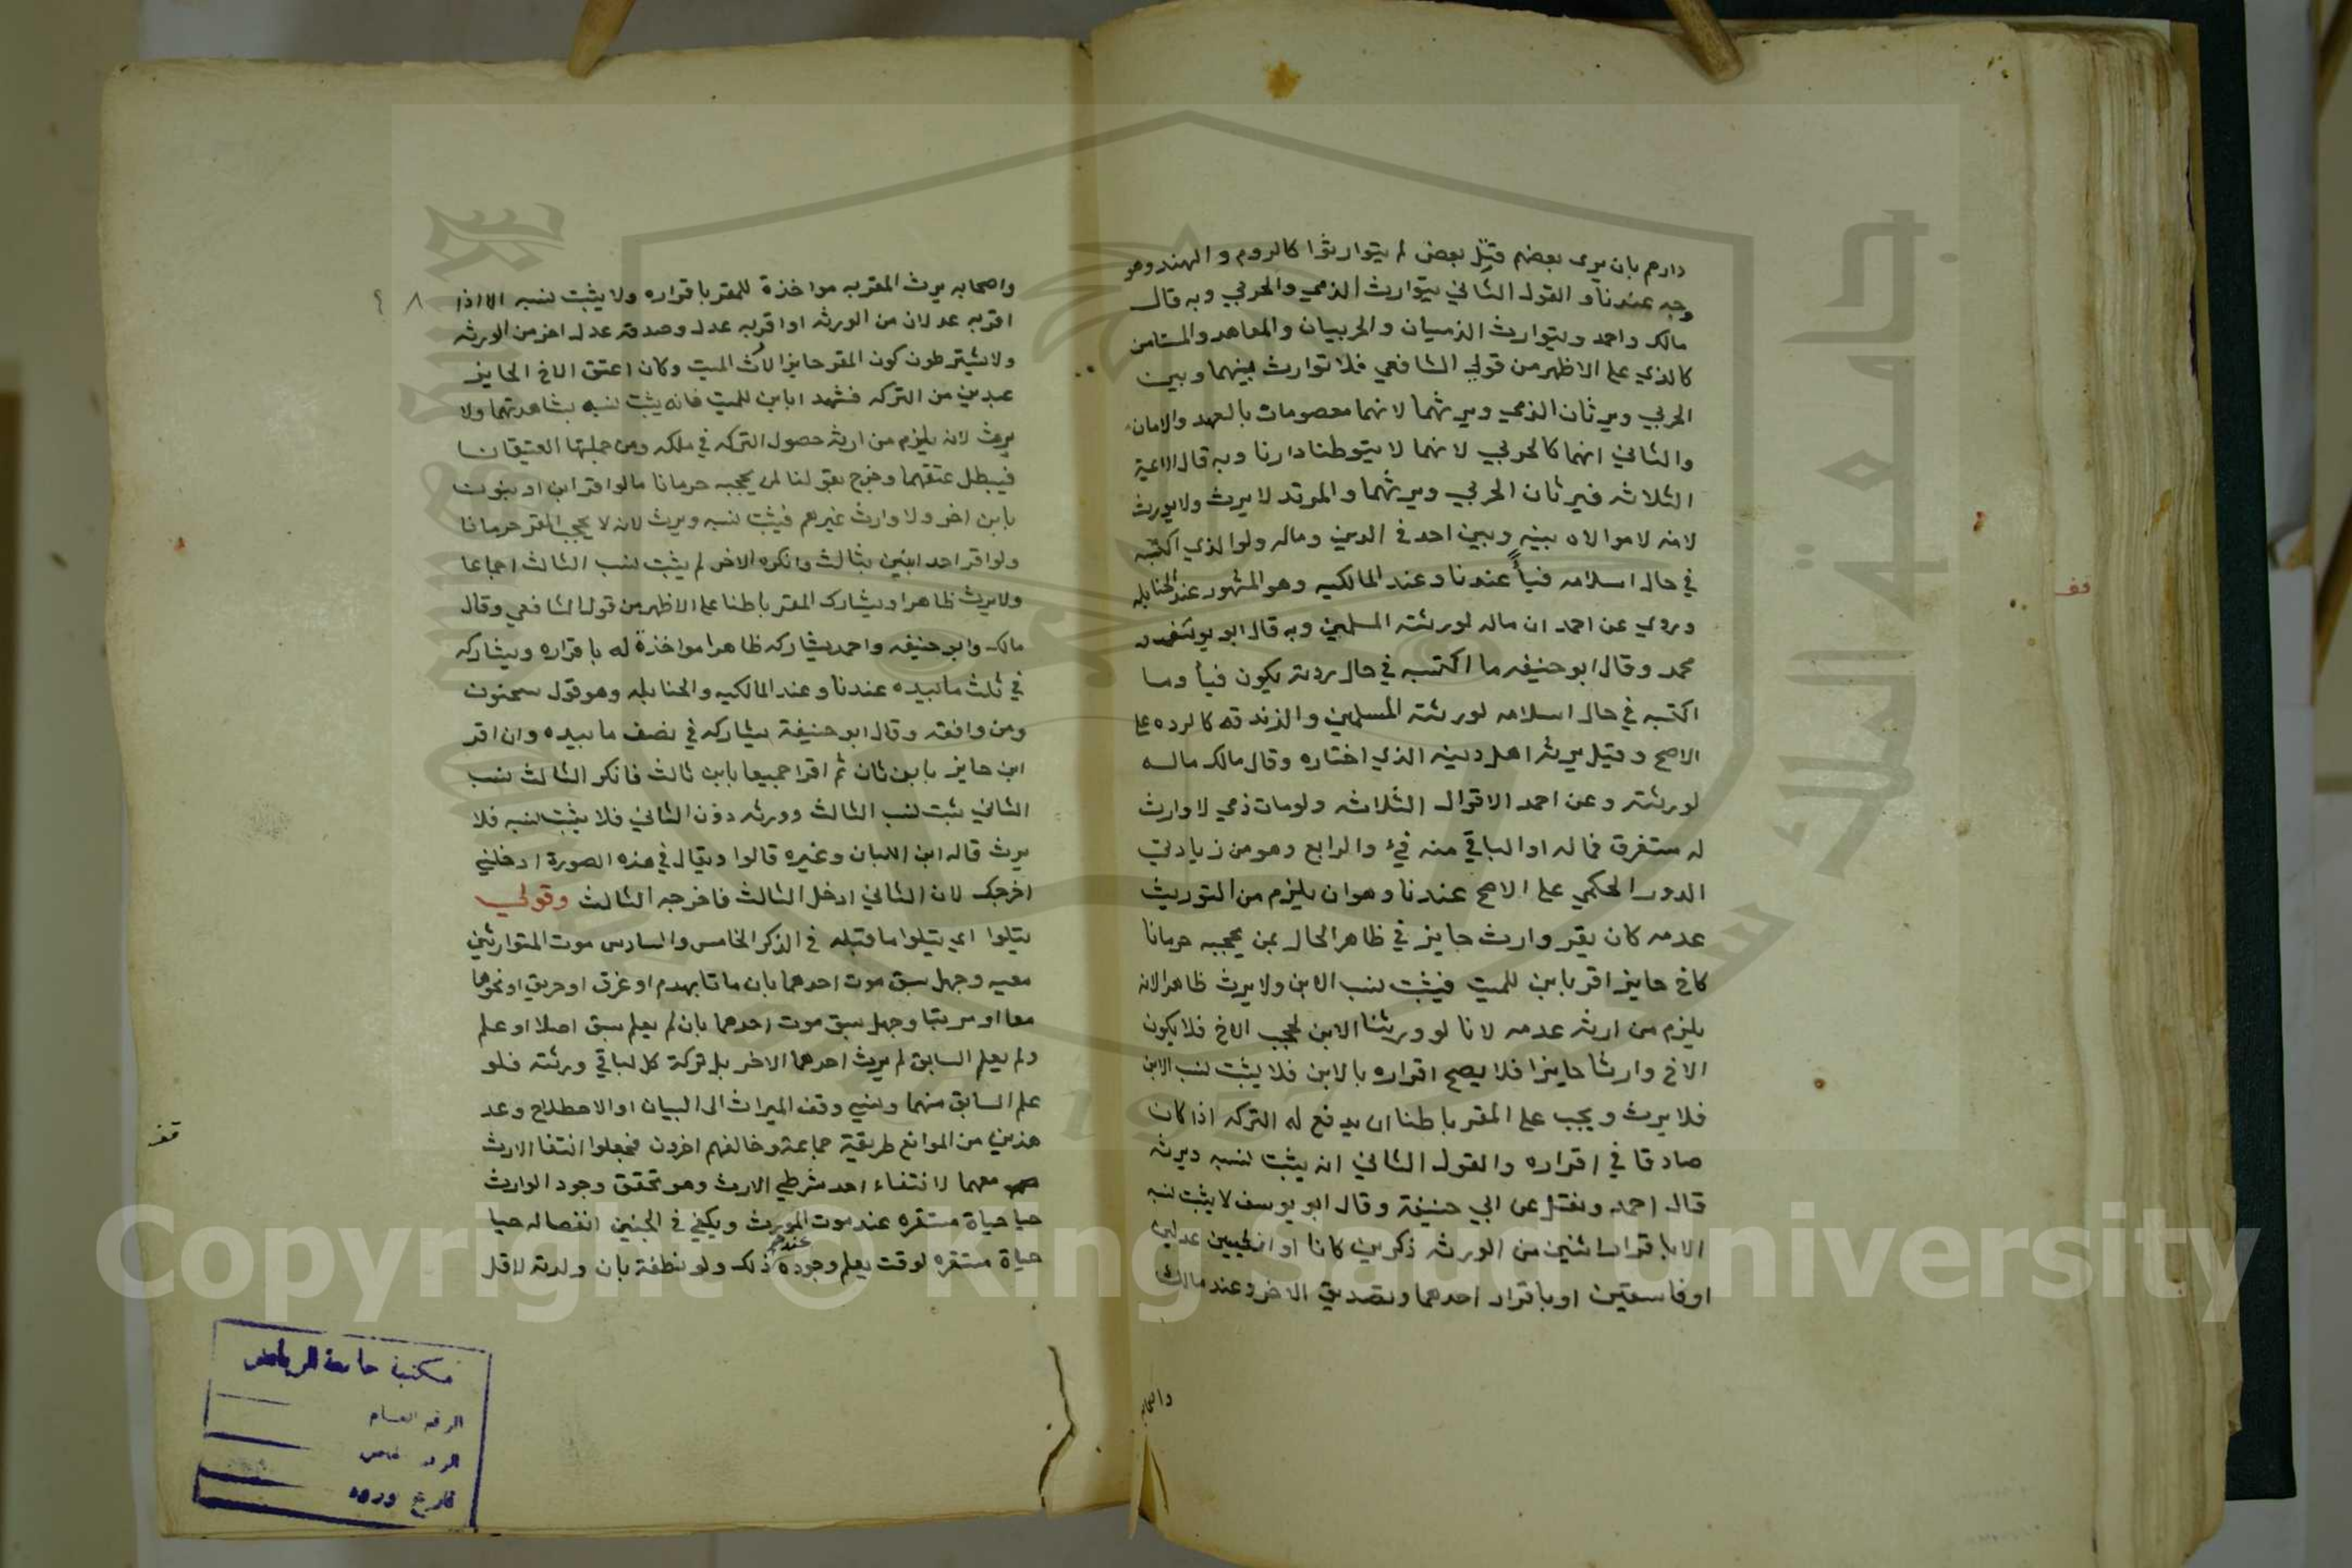 دارهم بان يرى بعضهم قتل بعض لم يتوارثوا كالروم والهند وهو
وجه عندنا والقول الثاني يتوارث الذمي والحربي وبه قال
مالك واحمد ويتوارث الذميان والحربيان والمعاهد والمستامن
كالذي على الاظهر من قولي الشافعي فلا توارث بينهما وبين
الحربي ويرثان الذمي ويرثهما لانهما معصومات بالعهد والامان
والثاني انهما كالحربي لانهما لا يتوطنا دارنا وبه قال الائمة
الثلاثه فيرثان الحربي ويرثهما والمرتد لا يرث ولا يورث
لانه لا موالاه بينه وبين احد في الدين وماله ولو الذي اكتسبه
في حال اسلامه فيأ عندنا وعند المالكيه وهو المشهور عند الحنابله
وروي عن احمد ان ماله لورثته المسلمين وبه قال ابو يوسف و
محمد وقال ابو حنيفه ما اكتسبه في حال ردته يكون فيأ وما
اكتسبه في حال اسلامه لورثته المسلمين والزندقه كالرده على
الاصح وقيل يرثه اهل دينه الذي اختاره وقال مالك ماله
لورثته وعن احمد الاقوال الثلاثه ولو مات ذمي لا وارث
له مستغرق فماله او الباقي منه فيء والرابع وهو من زيادتي
الدور الحكمي على الاصح عندنا وهو ان يلزم من التوريث
عدمه كان يقر وارث حايز في ظاهر الحال بمن يحجبه حرمانا
كاخ حايز اقر بابن للميت فيثبت نسب الابن ولا يرث ظاهرا لانه
يلزم من ارثه عدمه لانا لو ورثنا الابن لحجب الاخ فلا يكون
الاخ وارثا حايزا فلا يصح اقراره بالابن فلا يثبت نسب الابن
فلا يرث ويجب على المقر باطنا ان يدفع له التركه اذا كان
صادقا في اقراره والقول الثاني انه يثبت نسبه ويرثه
قال احمد ونقل عن ابي حنيفة وقال ابو يوسف لا يثبت نسبه
الا باقرار اثنين من الورثه ذكرين كانا او انثيين عدلين
او فاسقين او باقرار احدهما وتصديق الاخر وعند مالك
واصحابه
قف
٨
واصحابه يرث المقر به مواخذة للمقر باقراره ولا يثبت نسبه الا اذا
اقر به عدلان من الورثه او اقر به عدل وصدقه عدل اخر من الورثه
ولا يشترطون كون المقر حايزا لارث الميت وكان اعتق الاخ الحايز
عبدين من التركه فشهدا بابن للميت فانه يثبت نسبه بشهادتهما ولا
يرث لانه يلزم من ارثه حصول التركه في ملكه ومن جملتها العتيقان
فيبطل عتقهما وخرج بقولنا لمن يحجبه حرمانا ما لو اقر ابن او بنون
بابن اخر ولا وارث غيرهم فيثبت نسبه ويرث لانه لا يحجب المقر حرمانا
ولو اقر احد ابنين بثالث وانكره الاخر لم يثبت نسب الثالث اجماعا
ولا يرث ظاهرا ويشارك المقر باطنا على الاظهر من قول الشافعي وقال
مالك وابو حنيفه واحمد يشاركه ظاهرا مواخذة له باقراره ويشاركه
في ثلث ما بيده عندنا وعند المالكيه والحنابله وهو قول سحنون
ومن وافقه وقال ابو حنيفة يشاركه في نصف ما بيده وان اقر
ابن حايز بابن ثان ثم اقرا جميعا بابن ثالث فانكر الثالث نسب
الثاني ثبت نسب الثالث وورثه دون الثاني فلا يثبت نسبه فلا
يرث قاله ابن اللبان وغيره قالوا ويقال في هذه الصورة ادخلني
اخرجك لان الثاني ادخل الثالث فاخرجه الثالث وقولي
يتلوا اي يتلوا ما قبله في الذكر الخامس والسادس موت المتوارثين
معيه وجهل سبق موت احدهما بان ماتا بهدم او غرق او حريق او نحوها
معا او مرتبا وجهل سبق موت احدهما بان لم يعلم سبق اصلا او علم
ولم يعلم السابق لم يرث احدهما الاخر بل تركة كل لباقي ورثته فلو
علم السابق منهما ونسي وقف الميراث الى البيان او الاصطلاح وعد
هذين من الموانع طريقة جماعة وخالفهم اخرون فجعلوا انتفا الارث
معهما لانتفاء احد شرطي الارث وهو تحقق وجود الوارث
حيا حياة مستقره عند موت المورث ويكفي في الجنين انفصاله حيا
حياة مستقره لوقت يعلم وجوده عند ذلك ولو نطفة بان ولدته لاقل
قف
مكتبة جامعة الرياض
الرقم العام
الرقم الخاص
تاريخ وروده
جامعة الملك سعود
1957
Copyright © King Saud University